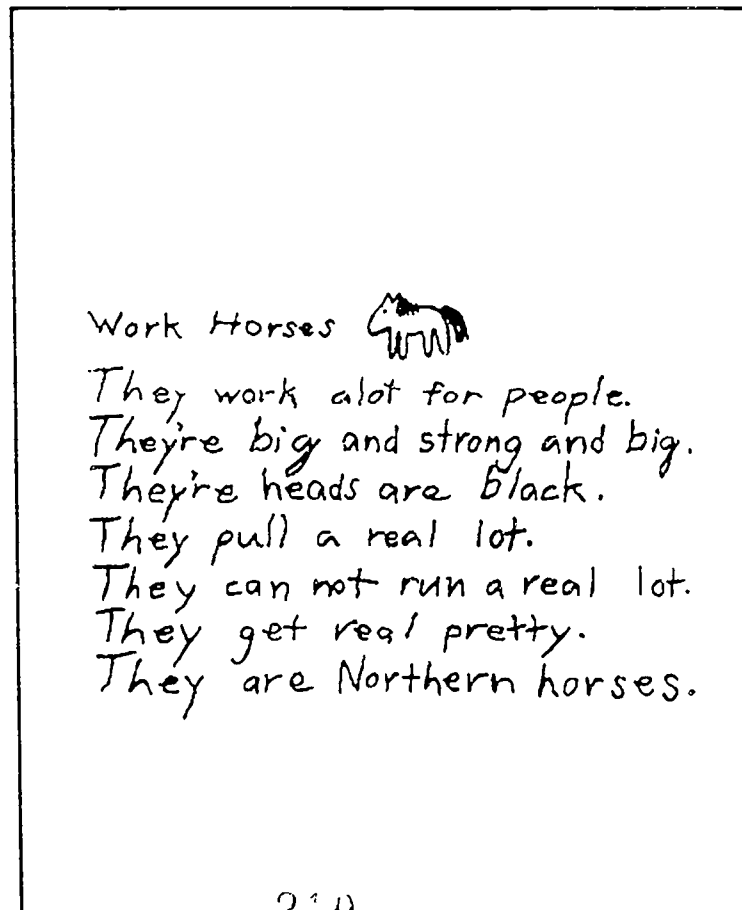 Work Horses
They work alot for people.
They're big and strong and big.
They're heads are black.
They pull a real lot.
They can not run a real lot.
They get real pretty.
They are Northern horses.